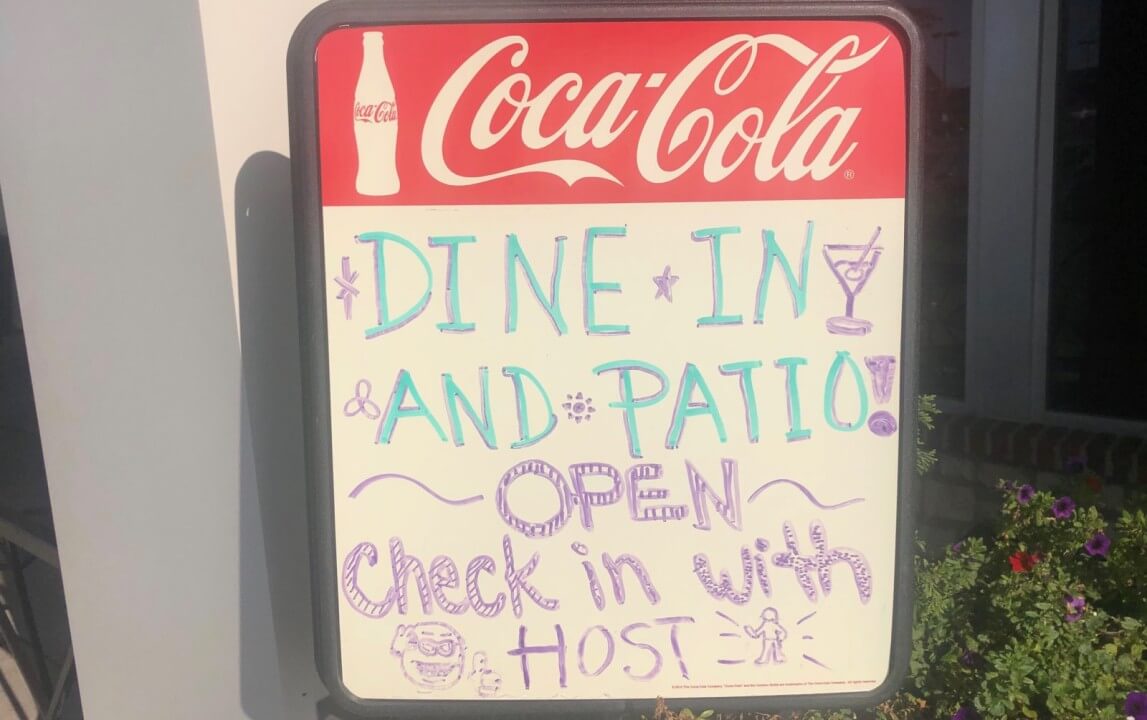 Coca-Cola
Coca-Cola®
DINE IN
AND PATIO!
OPEN
Check in with
HOST